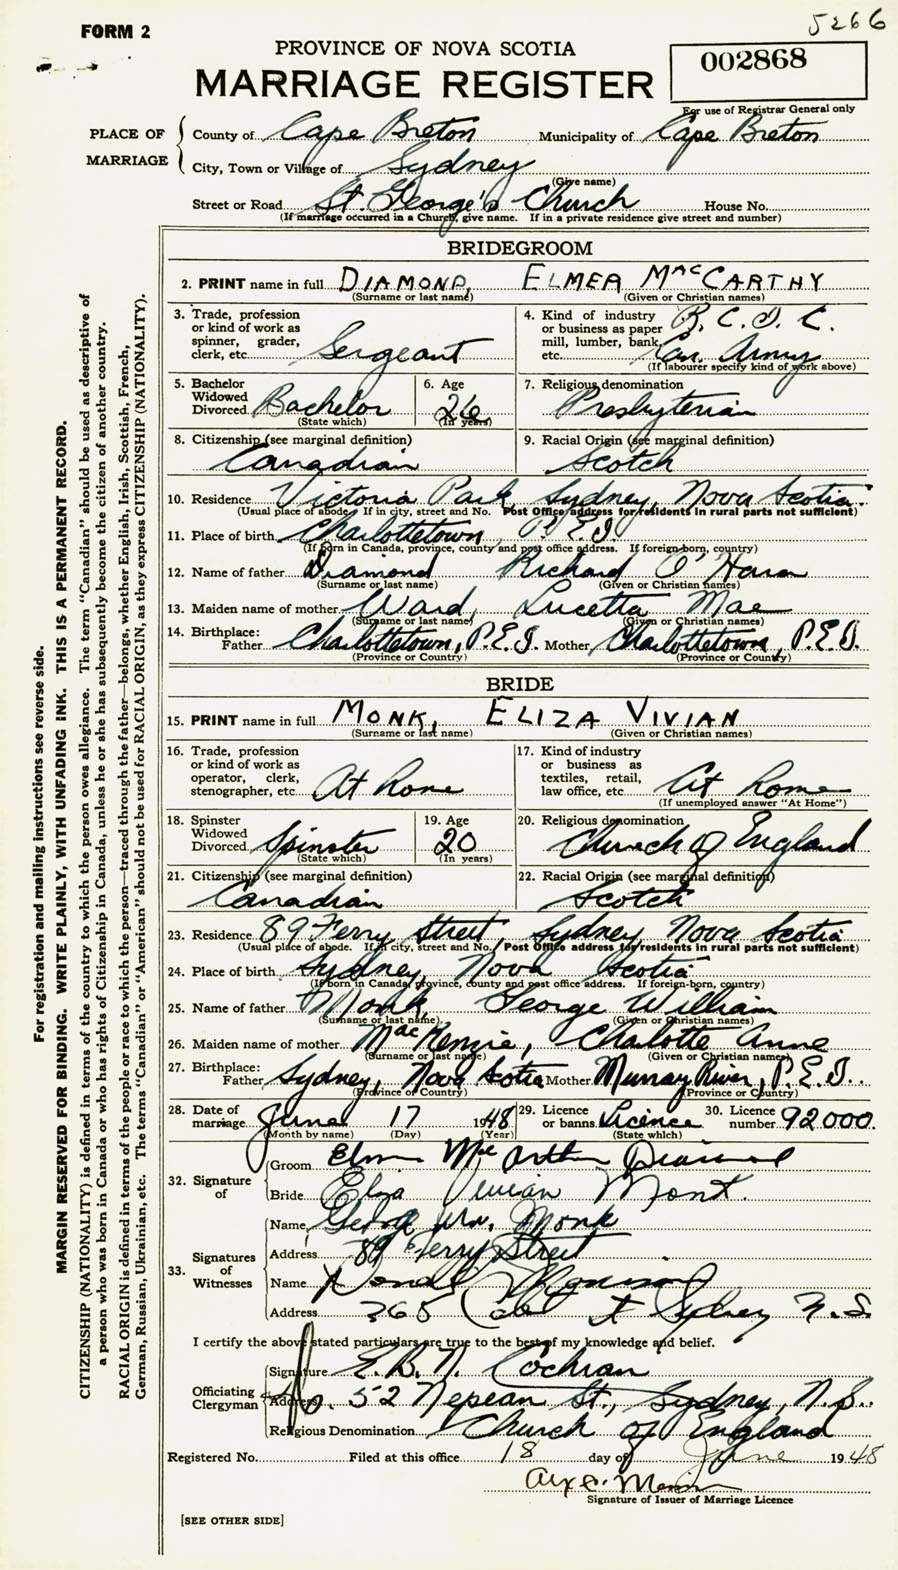 5266
FORM 2
PROVINCE OF NOVA SCOTIA
MARRIAGE REGISTER
002868
For use of Registrar General only
PLACE OF MARRIAGE
County of Cape Breton Municipality of Cape Breton
City, Town or Village of Sydney
(Give name)
Street or Road St. George's Church House No.
(If marriage occurred in a Church, give name. If in a private residence give street and number)
BRIDEGROOM
2. PRINT name in full DIAMOND, ELMER MacCARTHY
(Surname or last name) (Given or Christian names)
3. Trade, profession or kind of work as spinner, grader, clerk, etc. Sergeant
4. Kind of industry or business as paper mill, lumber, bank, etc. R. C. I. C. Can. Army
(If labourer specify kind of work above)
5. Bachelor Widowed Divorced Bachelor
(State which)
6. Age 26
(In years)
7. Religious denomination Presbyterian
8. Citizenship (see marginal definition) Canadian
9. Racial Origin (see marginal definition) Scotch
10. Residence Victoria Park Sydney, Nova Scotia.
(Usual place of abode. If in city, street and No. Post Office address for residents in rural parts not sufficient)
11. Place of birth Charlottetown, P.E.I
(If born in Canada, province, county and post office address. If foreign-born, country)
12. Name of father Diamond Richard O'Hara
(Surname or last name) (Given or Christian names)
13. Maiden name of mother Ward, Lucetta Mae
(Surname or last name) (Given or Christian names)
14. Birthplace: Father Charlottetown, P.E.I. Mother Charlottetown, P.E.I.
(Province or Country) (Province or Country)
BRIDE
15. PRINT name in full MONK, ELIZA VIVIAN
(Surname or last name) (Given or Christian names)
16. Trade, profession or kind of work as operator, clerk, stenographer, etc. At home
17. Kind of industry or business as textiles, retail, law office, etc. At home
(If unemployed answer "At Home")
18. Spinster Widowed Divorced Spinster
(State which)
19. Age 20
(In years)
20. Religious denomination Church of England
21. Citizenship (see marginal definition) Canadian
22. Racial Origin (see marginal definition) Scotch
23. Residence 89 Ferry Street, Sydney, Nova Scotia
(Usual place of abode. If in city, street and No. Post Office address for residents in rural parts not sufficient)
24. Place of birth Sydney, Nova Scotia
(If born in Canada, province, county and post office address. If foreign-born, country)
25. Name of father Monk, George William
(Surname or last name) (Given or Christian names)
26. Maiden name of mother MacKenzie, Charlotte Anne
(Surname or last name) (Given or Christian names)
27. Birthplace: Father Sydney, Nova Scotia Mother Murray River, P.E.I..
(Province or Country) (Province or Country)
28. Date of marriage June 17 1948
(Month by name) (Day) (Year)
29. Licence or banns Licence
(State which)
30. Licence number 92000.
32. Signature of
Groom Elmer MacArthur Diamond
Bride Eliza Vivian Monk.
33. Signatures of Witnesses
Name George Wm. Monk
Address 89 Ferry Street
Name
Address 368 St Sydney N.S.
I certify the above stated particulars are true to the best of my knowledge and belief.
Officiating Clergyman
Signature E.B.N. Cochran
Address 52 Nepean St., Sydney, N.S..
Religious Denomination Church of England
Registered No. Filed at this office 18 day of June 1948
Signature of Issuer of Marriage Licence
[SEE OTHER SIDE]
For registration and mailing instructions see reverse side.
MARGIN RESERVED FOR BINDING. WRITE PLAINLY, WITH UNFADING INK. THIS IS A PERMANENT RECORD.
CITIZENSHIP (NATIONALITY) is defined in terms of the country to which the person owes allegiance. The term "Canadian" should be used as descriptive of
a person who was born in Canada or who has rights of Citizenship in Canada, unless he or she has subsequently become the citizen of another country.
RACIAL ORIGIN is defined in terms of the people or race to which the person—traced through the father—belongs, whether English, Irish, Scottish, French,
German, Russian, Ukrainian, etc. The terms "Canadian" or "American" should not be used for RACIAL ORIGIN, as they express CITIZENSHIP (NATIONALITY).